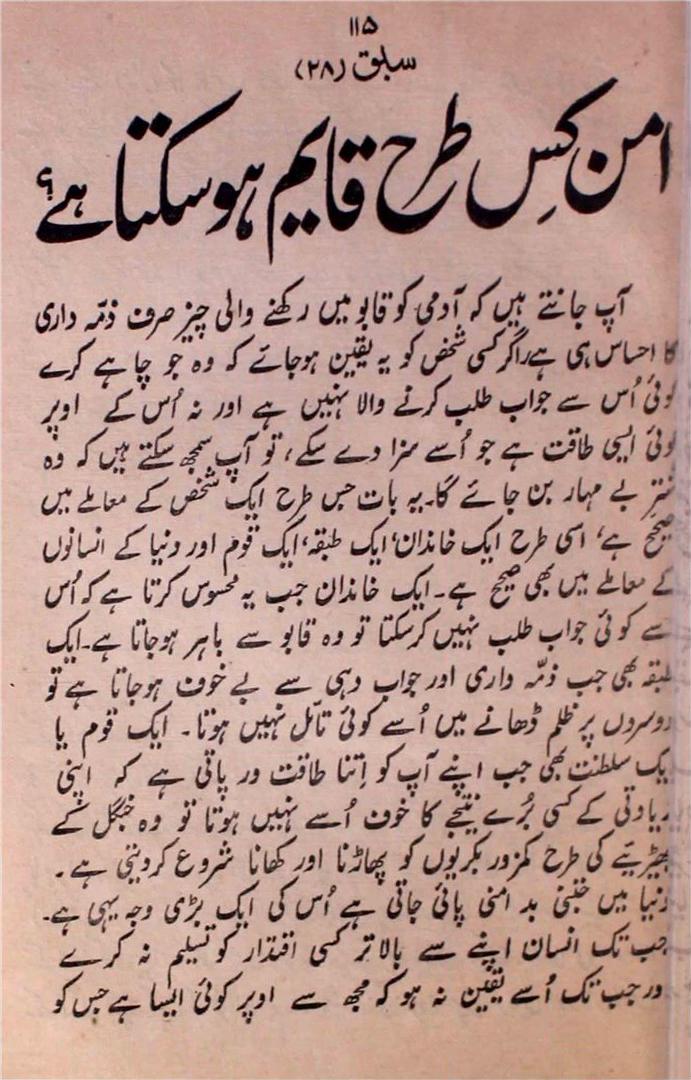 ۱۱۵
سبق (۲۸)
امن کس طرح قایم ہو سکتا ہے؟
آپ جانتے ہیں کہ آدمی کو قابو میں رکھنے والی چیز صرف ذمّہ داری
کا احساس ہی ہے۔ اگر کسی شخص کو یہ یقین ہو جائے کہ وہ جو چاہے کرے
کوئی اُس سے جواب طلب کرنے والا نہیں ہے اور نہ اُس کے اوپر
کوئی ایسی طاقت ہے جو اُسے سزا دے سکے، تو آپ سمجھ سکتے ہیں کہ وہ
شترِ بے مہار بن جائے گا۔ یہ بات جس طرح ایک شخص کے معاملے میں
صحیح ہے، اسی طرح ایک خاندان، ایک طبقہ، ایک قوم اور دنیا کے انسانوں
کے معاملے میں بھی صحیح ہے۔ ایک خاندان جب یہ محسوس کرتا ہے کہ اُس
سے کوئی جواب طلب نہیں کر سکتا تو وہ قابو سے باہر ہو جاتا ہے۔ ایک
طبقہ بھی جب ذمّہ داری اور جواب دہی سے بے خوف ہو جاتا ہے تو
دوسروں پر ظلم ڈھانے میں اُسے کوئی تامّل نہیں ہوتا۔ ایک قوم یا
ایک سلطنت بھی جب اپنے آپ کو اِتنا طاقت ور پاتی ہے کہ اپنی
زیادتی کے کسی بُرے نتیجے کا خوف اُسے نہیں ہوتا تو وہ جنگل کے
بھیڑیے کی طرح کمزور بکریوں کو پھاڑنا اور کھانا شروع کر دیتی ہے۔
دنیا میں جتنی بد امنی پائی جاتی ہے اُس کی ایک بڑی وجہ یہی ہے۔
جب تک انسان اپنے سے بالاتر کسی اقتدار کو تسلیم نہ کرے
اور جب تک اُسے یقین نہ ہو کہ مجھ سے اوپر کوئی ایسا ہے جس کو